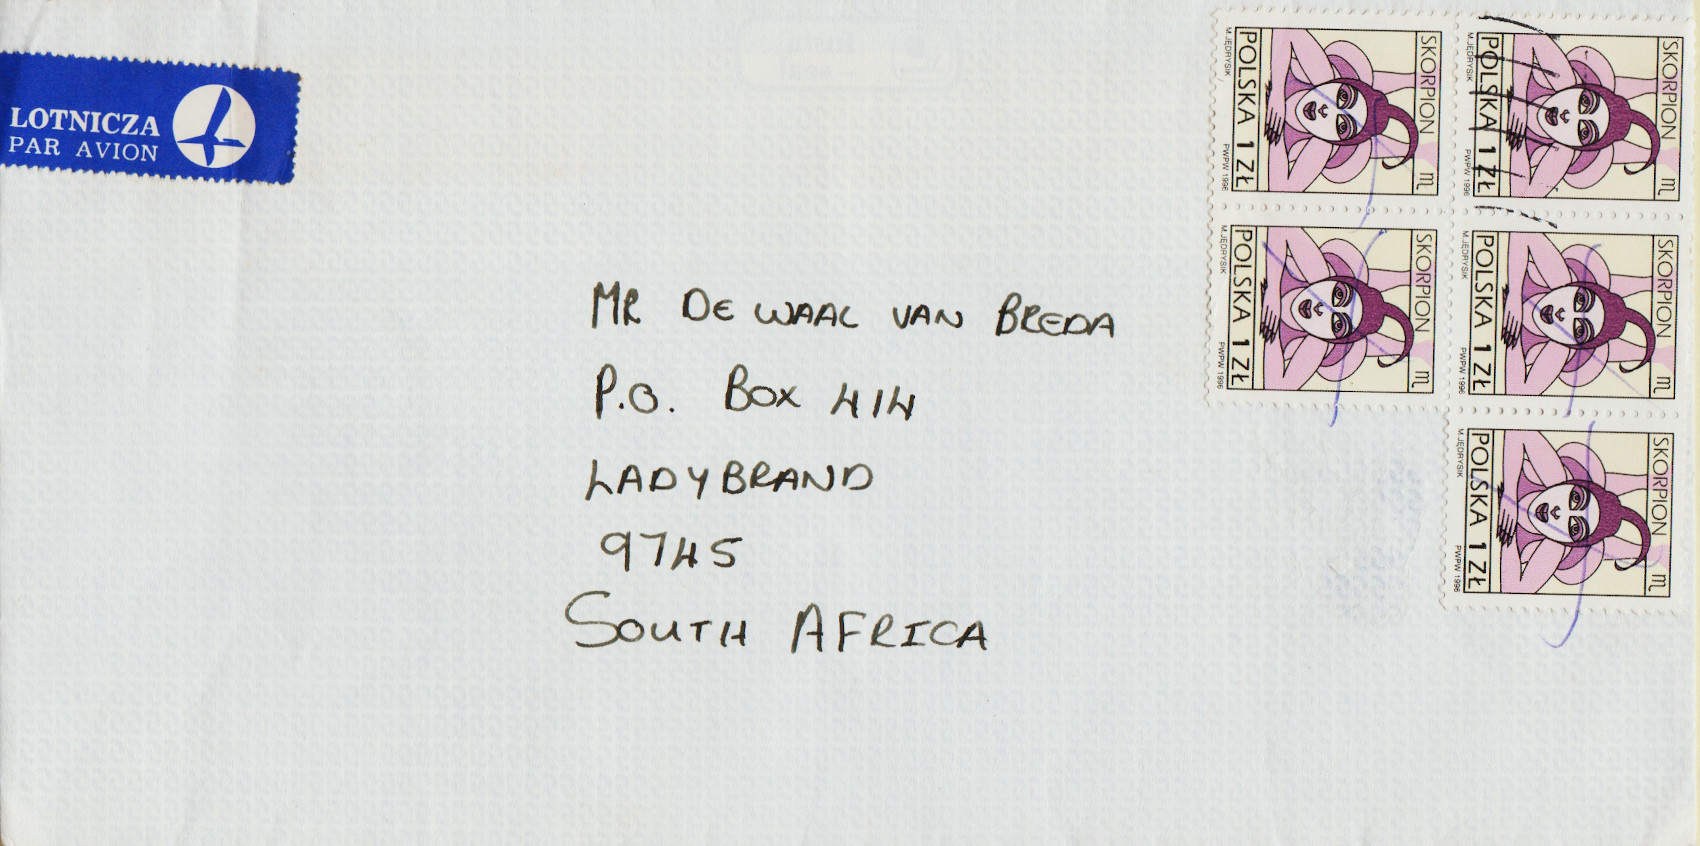 LOTNICZA
PAR AVION
MR DE WAAL VAN BREDA
P.O. BOX 414
LADYBRAND
9745
SOUTH AFRICA
SKORPION ♏
POLSKA 1 ZŁ
M.JĘDRYSIK PWPW 1996
SKORPION ♏
POLSKA 1 ZŁ
M.JĘDRYSIK PWPW 1996
SKORPION ♏
POLSKA 1 ZŁ
M.JĘDRYSIK PWPW 1996
SKORPION ♏
POLSKA 1 ZŁ
M.JĘDRYSIK PWPW 1996
SKORPION ♏
POLSKA 1 ZŁ
M.JĘDRYSIK PWPW 1996